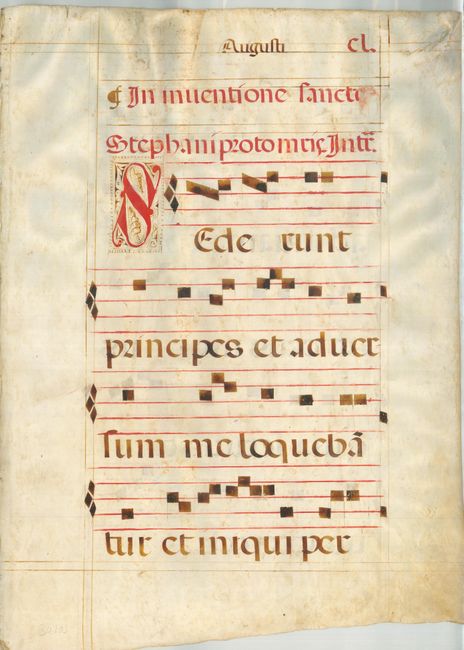 Augusti CL.
¶ In inuentione sancte
Stephani protomr̃is Intr̃.
SEde runt
principes et aduer
sum me loquebã
tur et iniqui per